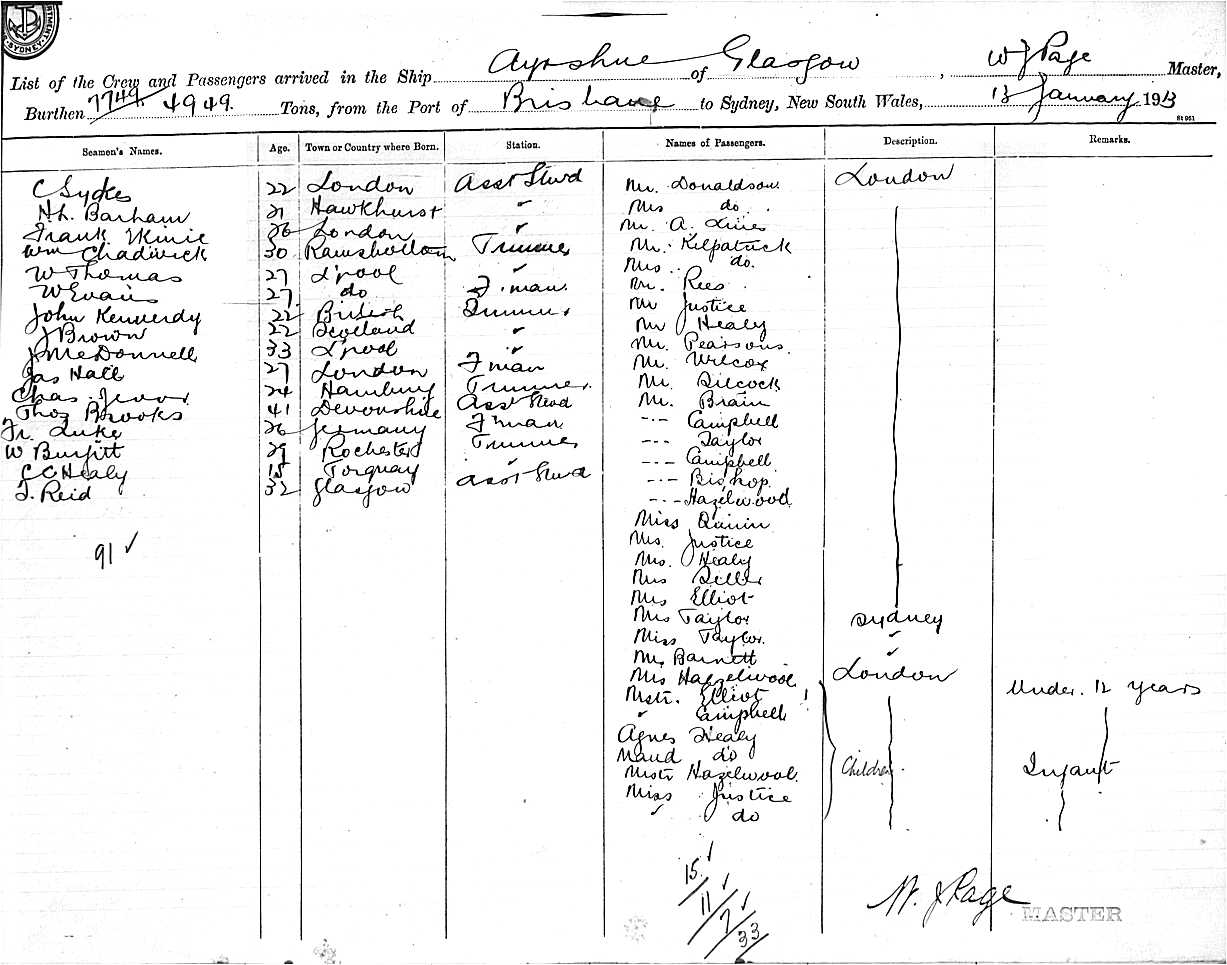 SYDNEY
List of the Crew and Passengers arrived in the Ship Ayrshire of Glasgow, W J Page Master,
Burthen 7749. 4949. Tons, from the Port of Brisbane to Sydney, New South Wales, 13 January 1913
St 961
Seamen's Names. Age. Town or Country where Born. Station. Names of Passengers. Description. Remarks.
C Sykes 22 London Asst Stwd Mr. Donaldson. London
H. Barham 21 Hawkhurst ✓ Mrs do.
Frank 26 London ✓ Mr. A.
Wm Chadwick 30 Ramsbottom Trimmer Mr. Kilpatrick
W Thomas 27 L'pool ✓ Mrs. do.
W Evans 27 do F.man. Mr. Rees
John Kennerdy 22 British Trimmer Mr Justice
J Brown 22 Scotland ✓ Mr Healy
J McDonnell 33 L'pool ✓ Mr. Pearsons.
Jas Hall 27 London Fman Mr. Wilcox
Chas. 24 Hamburg Trimmer. Mr. Silcock
Thos Brooks 41 Devonshire Asst Stwd Mr. Brain
Fr. Luke 26 Germany F'man -·- Campbell
W Burfitt 29 Rochester Trimmer --- Taylor
C C Healy Torquay ✓ -·- Campbell
J. Reid 32 Glasgow Asst Stwd -·- Bishop.
-·- Hazelwood
Miss Quinn
Mrs. Justice
91 ✓ Mrs. Healy
Mrs
Mrs Elliot
Mrs Taylor Sydney
Miss Taylor. ✓
Barnett ✓
Mrs Hazelwood London
Mstr. Elliot Under. 12 years
✓ Campbell
Agnes Healy
Maud do
Mstr Hazelwood. Children. Infant
Miss Justice
✓ do
15 ✓
11 ✓
7 ✓
33
W. J Page
MASTER